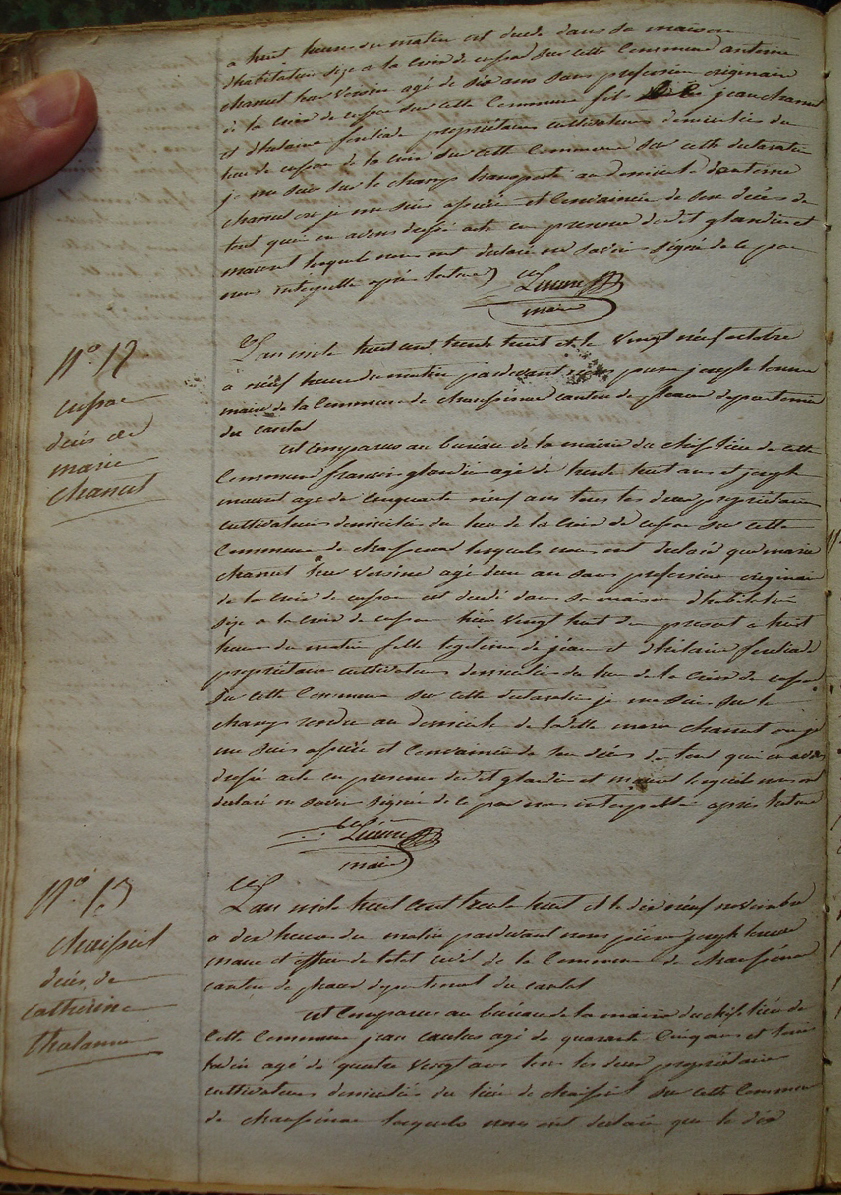 a huit heures du matin est decédé dans sa maison
d'habitation size a la croix de cussac sur cette Commune antoine
chancel agé de six ans sans profession originaire
de la croix de cussac sur cette Commune fils de jean chancel
et d'hélaine propriétaires cultivateurs domiciliés du
lieu de cussac de la croix sur cette Commune sur cette declaration
je me suis sur le champs transporté au domicile d'antoine
chancel ou je me suis assuré et Convaincu de son décés de
tout quoi en avons dressé acte en presence dedit glandin et
maurel lesquels nous ont déclaré ne savoir signé de ce par
nous interpellé après lecture
maire
N° 12
cussac
décés de
marie
chancel
L'an mile huit cent trente huit et le vingt neuf octobre
a neuf heures du matin pardevant nous pierre joseph
maire de la Commune de chaussenac canton de pleaux departement
du cantal
est Comparus au bureau de la mairie du chef lieu de cette
Commune francois glandin agé de trente huit ans et joseph
maurel agé de Cinquante neuf ans tous les deux propriétaires
cultivateurs domiciliés du lieu de la croix de cussac sur cette
Commune de chaussenac lesquels nous ont declaré que marie
chancel agé d'un an sans profession originaire
de la croix de cussac est decédé dans sa maison d'habitation
size a la croix de cussac hier vingt huit du present a huit
heures du matin fille legitime de jean et d'hélaine
propriétaires cultivateurs domiciliés du lieu de la croix de cussac
sur cette Commune sur cette declaration je me suis sur le
champs rendu au domicile de ladite marie chancel ou je
me suis assuré et Convaincu de son décés de tout quoi en avons
dressé acte en presence dedit glandin et maurel lesquels nous ont
declaré ne savoir signé de ce par nous interpellé après lecture
maire
N° 13
chaissiel
décés de
catherine
thalamon
L'an mile huit cent trente huit et le dix neuf novembre
a dix heures du matin pardevant nous pierre joseph
maire et officier de l'etat civil de la Commune de chaussenac
canton de pleaux departement du cantal
est Comparus au bureau de la mairie du chef lieu de
cette Commune jean agé de quarante Cinq ans et
agé de quatre vingt ans tous les deux propriétaires
cultivateurs domiciliés du lieu de chaissiel sur cette Commune
de chaussenac lesquels nous ont declaré que le dix